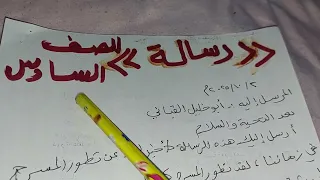 « رسالة » للصف
السادس
٢٠٢٥/١٠/٢م
المرسل إليه :- أبو خليل القباني
بعد التحية والسلام
أرسل إليك هذه الرسالة لأخبرك عن تطور المسرح
في زماننا، لقد تطور المسرح